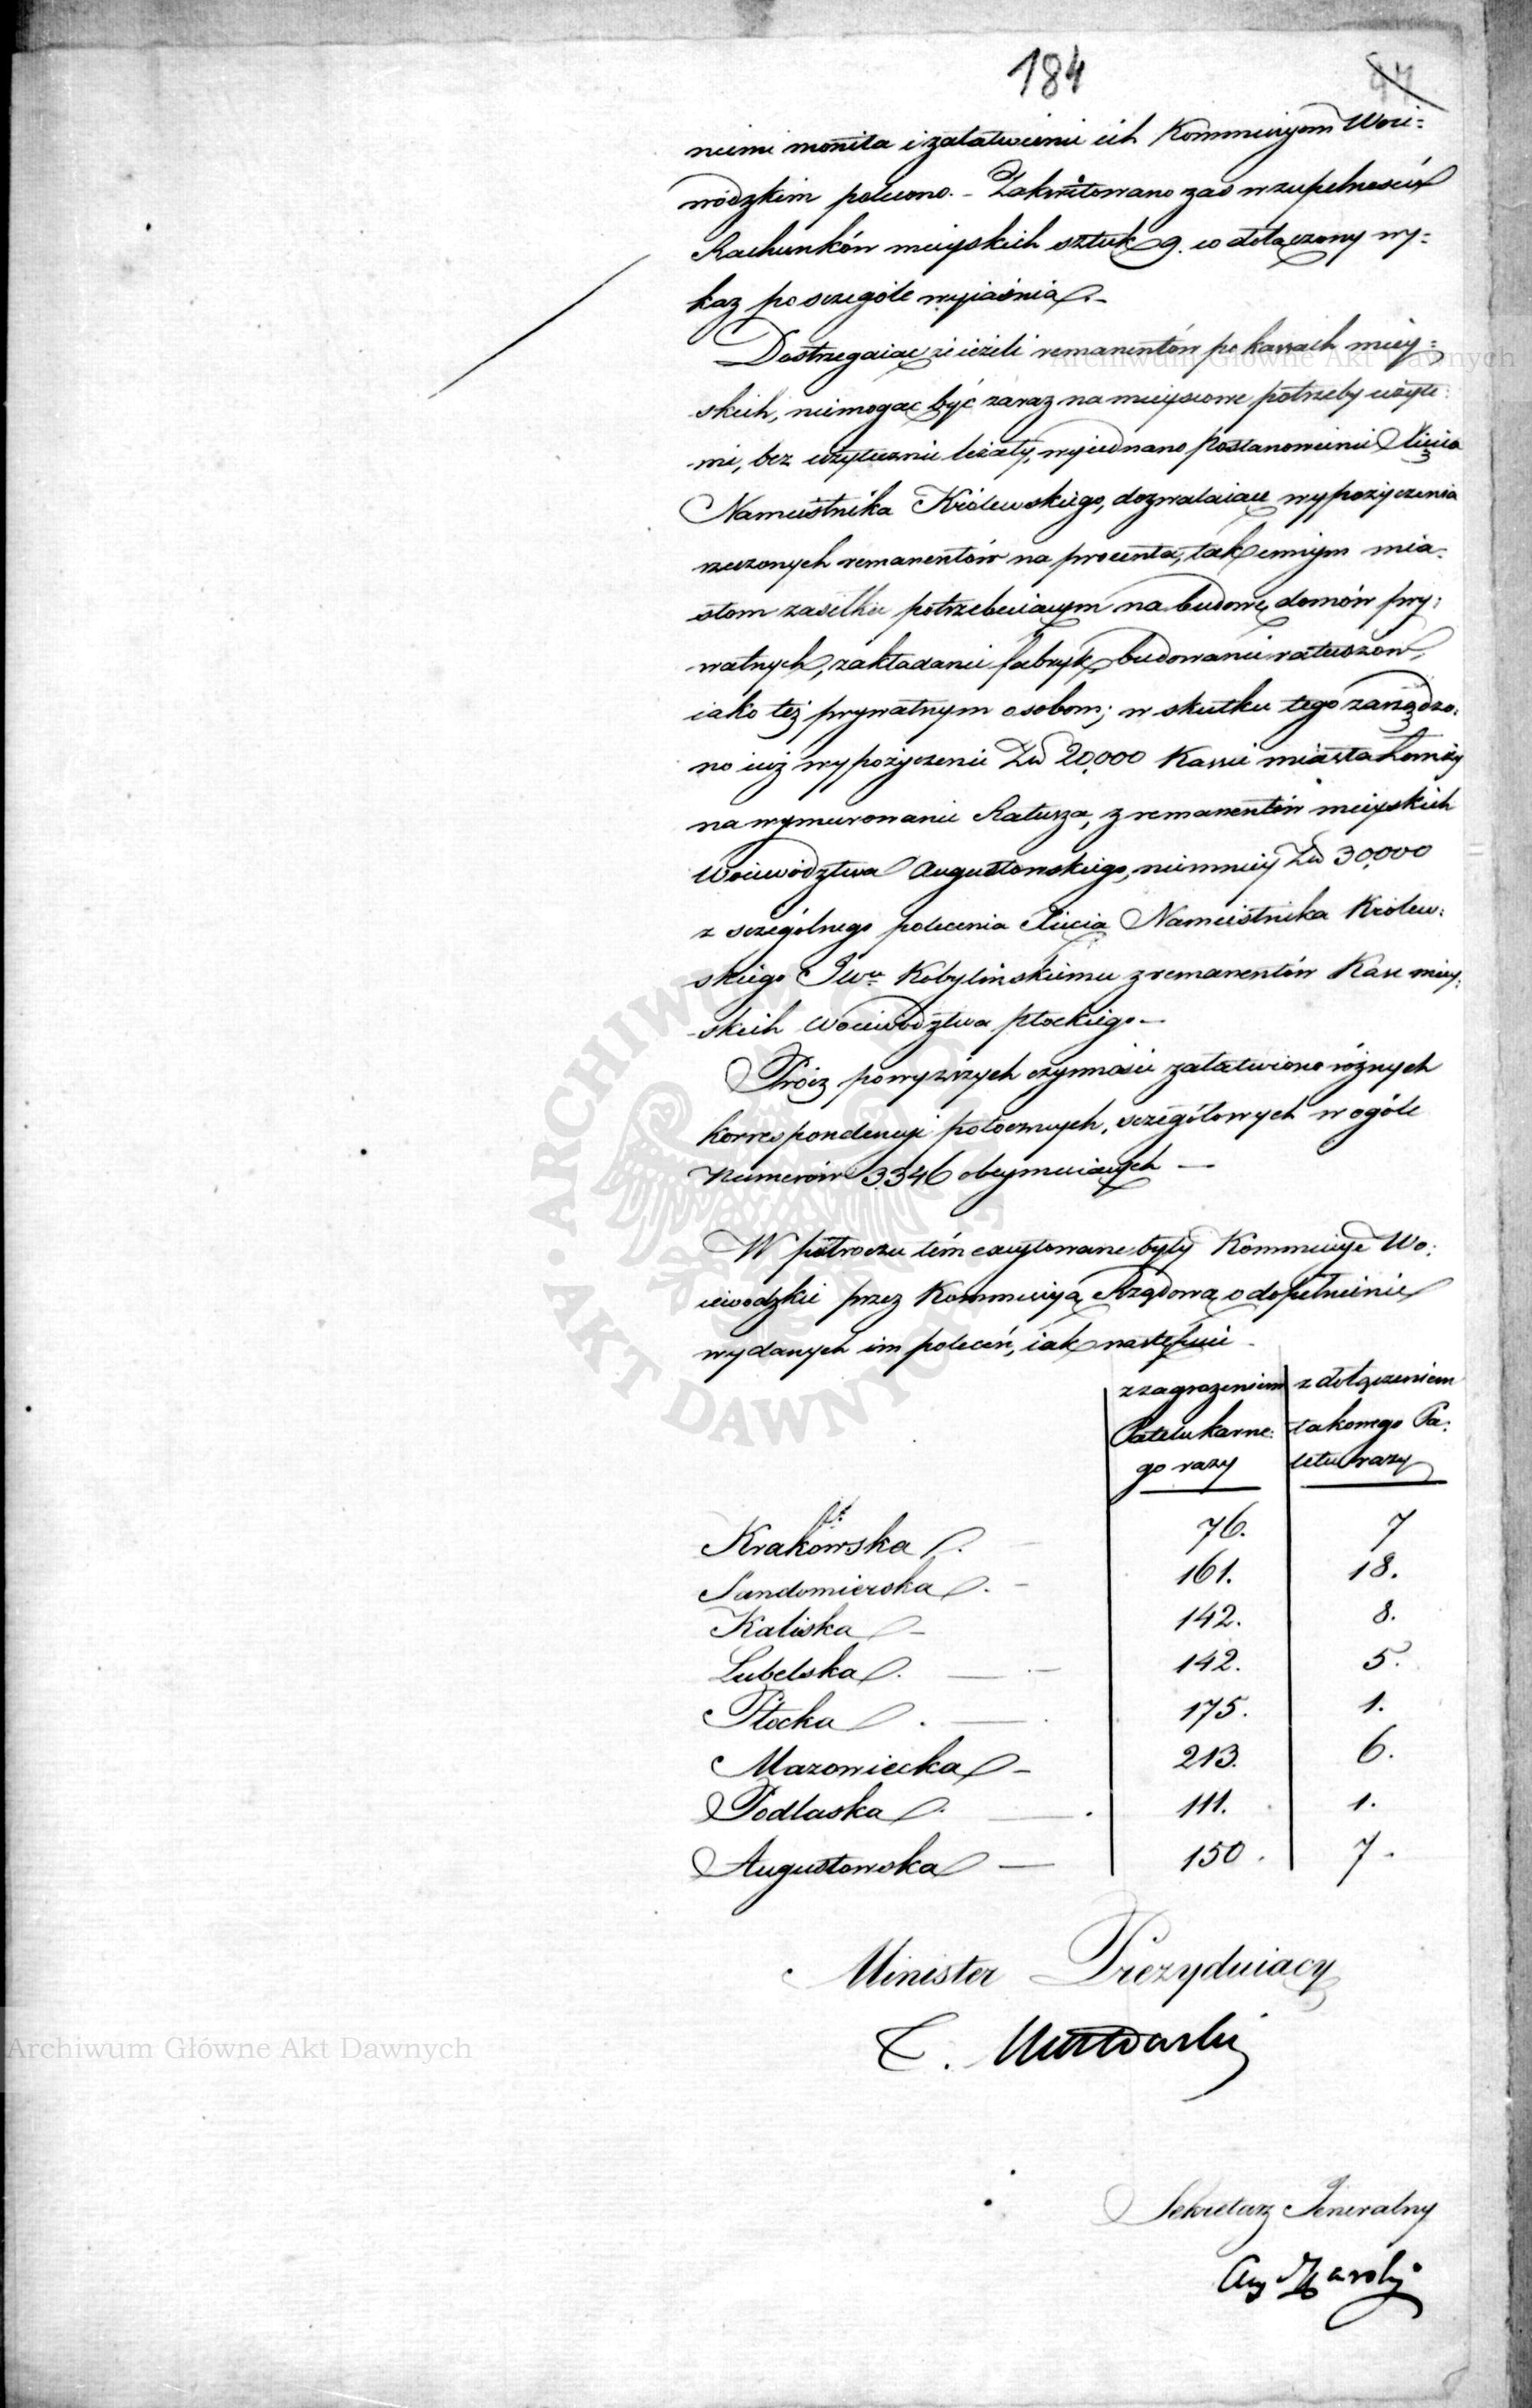 184
nimi monita i załatwienie ich Kommissyom Woie=
wódzkim polecono. – Zakwitowano zaś w zupełności
Rachunków mieyskich sztuk 9. co dołączony wy=
kaz poszczególe wyiaśnia. –
Dostrzegaiąc że ieżeli remanentów po kassach miey=
skich, niemogąc być zaraz na mieyscowe potrzeby użyte=
mi, bez użytecznie leżały, wyiednano Postanowienie Xięcia
Namiestnika Królewskiego, dozwalaiące wypożyczenia
rzeczonych remanentów na procenta, tak innym mia=
stom zasiłku potrzebuiącym na budowę domów pry=
watnych, zakładanie fabryk, budowanie ratuszów,
iako też prywatnym osobom; w skutku tego zarządzo=
no iuż wypożyczenie Zł 20,000 Kassie miasta Łomży
na wymurowanie Ratusza, z remanentów mieyskich
Woiewództwa Augustowskiego, niemniey Zł 30,000
z szczególnego polecenia Xięcia Namiestnika Królew=
skiego JWu Kobylińskiemu z remanentów Kass miey=
skich Woiewództwa Płockiego –
Prócz powyższych czynności załatwiono różnych
korrespondencyi potocznych, szczegółowych w ogóle
Numerów 3346 obeymuiących —
W półroczu tém excytowane były Kommissye Wo=
iewódzkie przez Kommissyą Rządową o dopełnienie
wydanych im poleceń, iak następuie
z zagrożeniem
Paletu karne=
go razy
z dołączeniem
takowego Pa=
letu razy
Krakowska . – 76. 7
Sandomierska . – 161. 18.
Kaliska – 142. 8.
Lubelska . — – 142. 5.
Płocka . — . 175. 1.
Mazowiecka – 213. 6.
Podlaska . — . 111. 1.
Augustowska — 150. 7.
Minister Prezyduiący
T. Mostowski
Sekretarz Jeneralny
Aug Karski
Archiwum Główne Akt Dawnych
Archiwum Główne Akt Dawnych
ARCHIWUM GŁÓWNE · AKT DAWNYCH